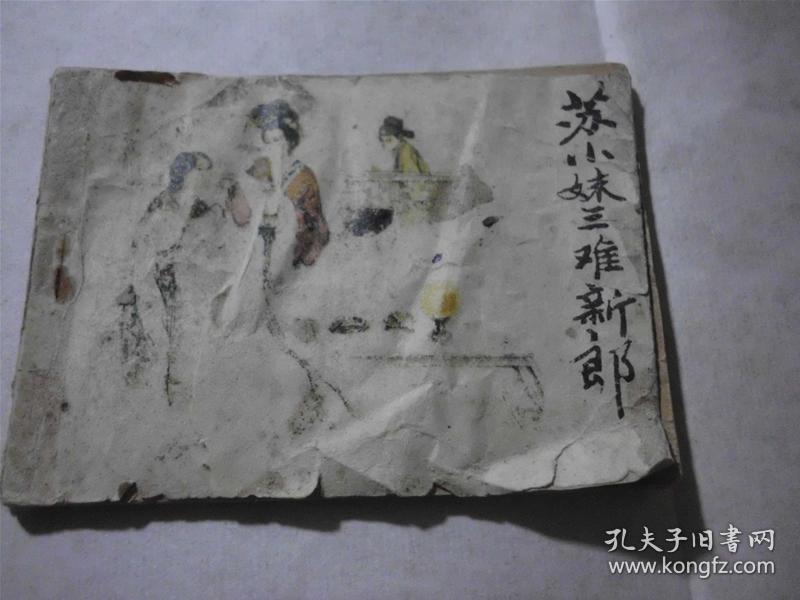 苏小妹三难新郎
孔夫子旧书网
www.kongfz.com